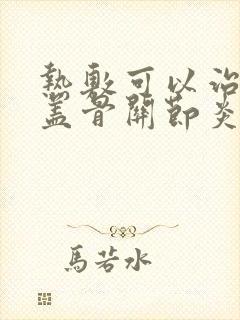 熱敷可以治
蓋骨關節炎
馬若水